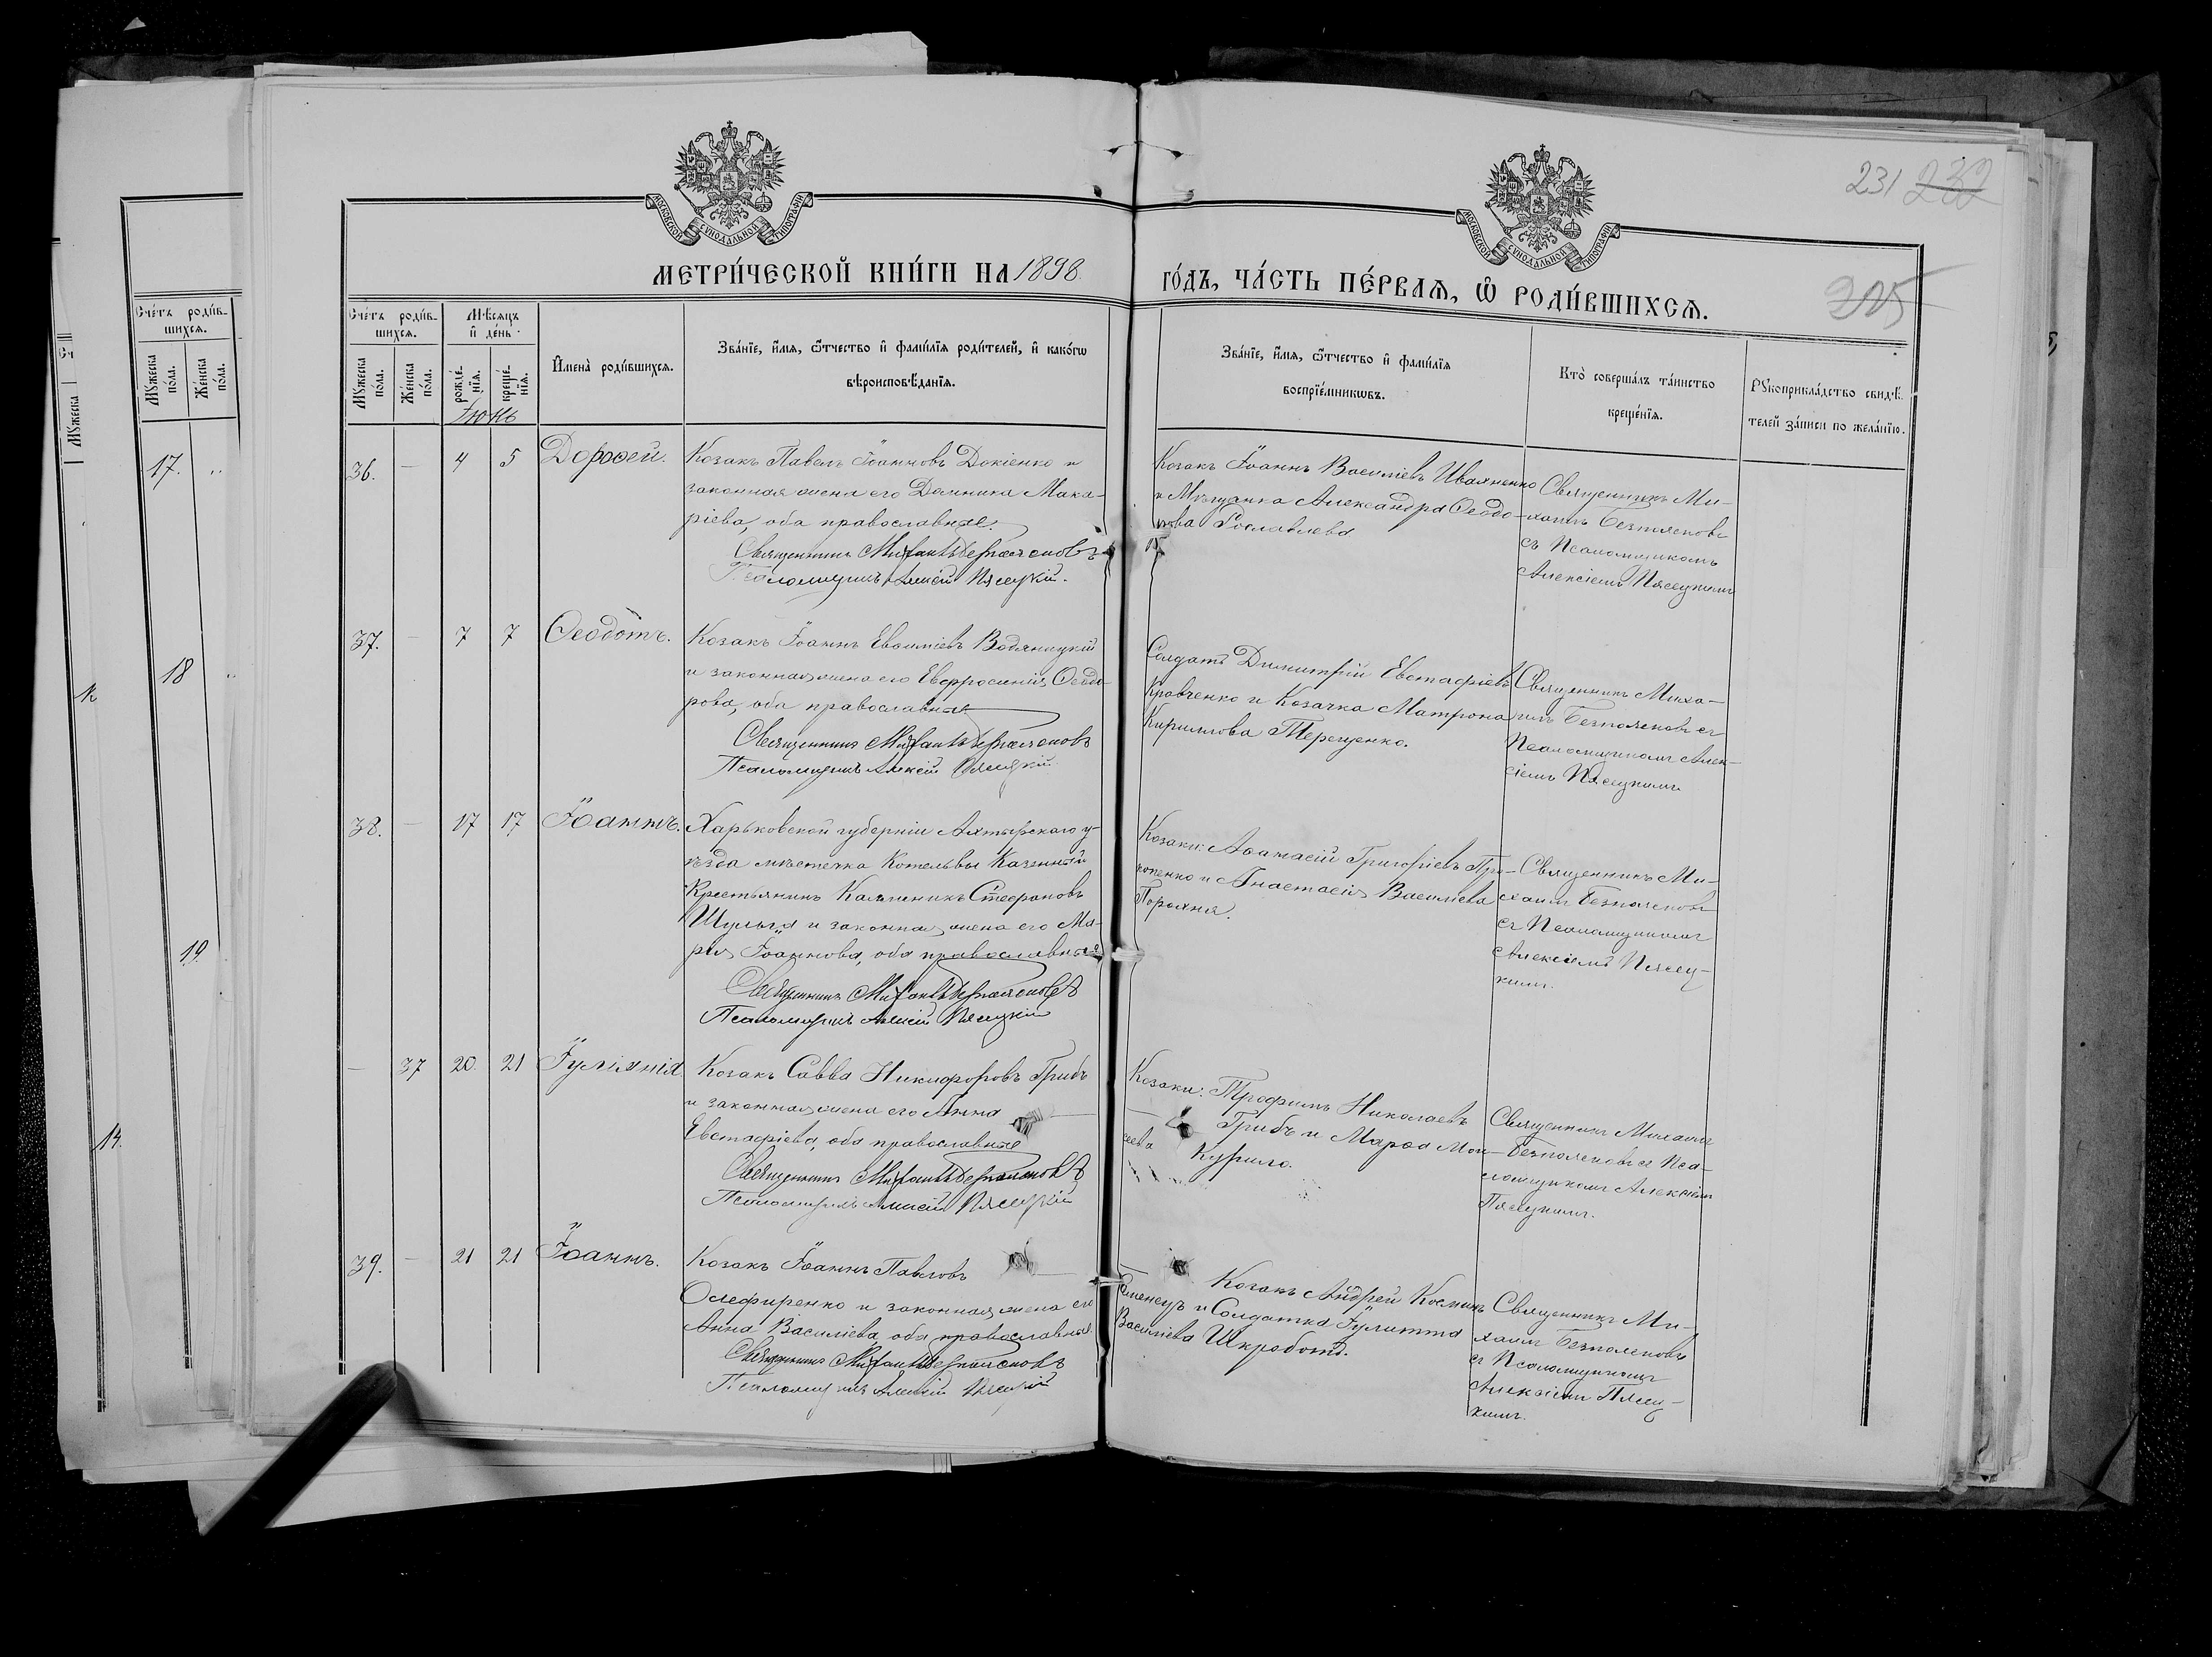 231 232
205
МОСКОВСКОЙ СѴНОДАЛЬНОЙ ТИПОГРАФІИ
МОСКОВСКОЙ СѴНОДАЛЬНОЙ ТИПОГРАФІИ
МЕТРИ́ЧЕСКОЙ КНИ́ГИ НА 1898 ГО́ДЪ, ЧА́СТЬ ПЕ́РВАѦ, Ѡ҆ РОДИ́ВШИХСѦ.
Сче́тъ роди́в-
шихсѧ.
Мꙋжеска по́ла.
Же́нска по́ла.
Мѣ́сѧцъ
и҆ де́нь
рожде́-
нїѧ.
креще́-
нїѧ.
Іюнь
И҆мена̀ роди́вшихсѧ.
Зва́нїе, и҆́мѧ, ѻ҆́тчество и҆ фами́лїѧ роди́телей, и҆ како́гѡ
вѣроисповѣ́данїѧ.
Зва́нїе, и҆́мѧ, ѻ҆́тчество и҆ фами́лїѧ
воспрїе́мникѡвъ.
Кто̀ соверша́лъ та́инство
креще́нїѧ.
Рꙋкоприкла́дство свидѣ́-
телей за́писи по жела́нїю.
Сче́тъ роди́в-
шихсѧ.
Мꙋжеска по́ла.
Же́нска по́ла.
Мꙋжеска
17.
18
19
14.
36. — 4 5 Дороѳей.
Козакъ Павелъ Іоанновъ Докіенко и
законная жена его Домника Мака-
ріева, оба православные.
Священникъ Михаилъ Безпалчевъ
Псаломщикъ Алексій Пясецкій.
Козакъ Іоаннъ Василіевъ Иваненко
и Мѣщанка Александра Ѳеодо-
рова Рославлева
Священникъ Ми-
хаилъ
съ Псаломщикомъ
Алексіемъ Пясецкимъ
37. — 7 7 Ѳеодотъ.
Козакъ Іоаннъ Евѳиміевъ Водяницкій
и законная жена его Евфросинія Ѳеодо-
рова, оба православные.
Священникъ Михаилъ
Псаломщикъ Алексій Пясецкій
Солдатъ Димитрій Евстафіевъ
Кравченко и Козачка Матрона
Кириллова Терещенко.
Священникъ Миха-
илъ съ
Псаломщикомъ Алек-
сіемъ Пясецкимъ
38. — 17 17 Іоаннъ.
Харьковской губерніи Ахтырскаго у-
ѣзда мѣстечка Котельвы Казенный
Крестьянинъ Каллиникъ Стефановъ
Шульга и законная жена его Ма-
рія Іоаннова, оба православные
Священникъ Михаилъ
Псаломщикъ Алексій Пясецкій
Козаки: Аѳанасій Григоріевъ Про-
копенко и Анастасія Василіева
Порохня.
Священникъ Ми-
хаилъ
съ Псаломщикомъ
Алексіемъ Пясец-
кимъ.
— 37 20. 21 Іуліянія
Козакъ Савва Никифоровъ Грибъ
и законная жена его Анна
Евстафіева, оба православные
Священникъ Михаилъ
Псаломщикъ Алексій Пясецкій
Козаки: Трофимъ Николаевъ
Грибъ и Марѳа Мои-
сеева Курило.
Священникъ Михаилъ
съ Пса-
ломщикомъ Алексіемъ
Пясецкимъ.
39. — 21 21 Іоаннъ.
Козакъ Іоаннъ Павловъ
Олефиренко и законная жена его
Анна Василіева, оба православные
Священникъ Михаилъ
Псаломщикъ Алексій Пясецкій
Козакъ Андрей Косминъ
Семенецъ и Солдатка Іулитта
Василіева Шкробота.
Священникъ Ми-
хаилъ
съ Псаломщикомъ
Алексіемъ Пясец-
кимъ.